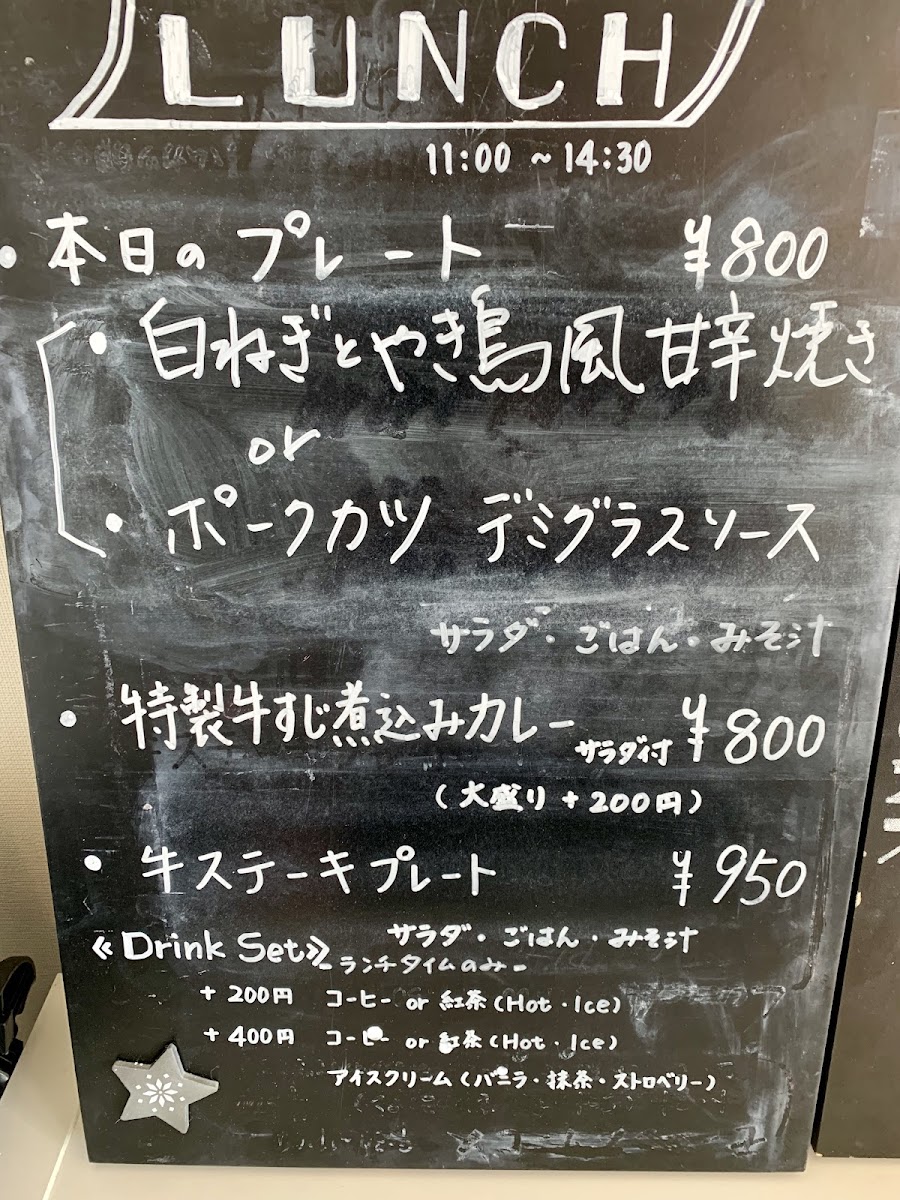 LUNCH
11:00 ~ 14:30
・本日のプレート ¥800
・白ねぎとやき鳥風甘辛焼き
or
・ポークカツ デミグラスソース
サラダ・ごはん・みそ汁
・特製牛すじ煮込みカレー サラダ付 ¥800
(大盛り+200円)
・牛ステーキプレート ¥950
サラダ・ごはん・みそ汁
《Drink Set》
-ランチタイムのみ-
+200円 コーヒー or 紅茶(Hot・Ice)
+400円 コーヒー or 紅茶(Hot・Ice)
アイスクリーム(バニラ・抹茶・ストロベリー)